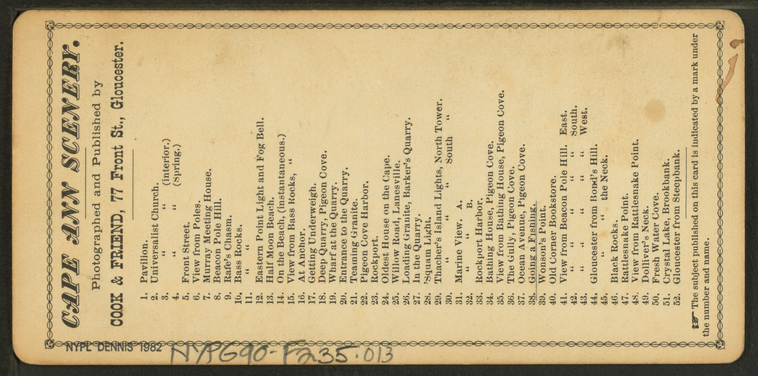 CAPE ANN SCENERY.
Photographed and Published by
COOK & FRIEND, 77 Front St., Gloucester.
1. Pavilion.
2. Universalist Church.
3. " " (Interior.)
4. " " (Spring.)
5. Front Street.
6. View from Poles.
7. Murray Meeting House.
8. Beacon Pole Hill.
9. Rafe's Chasm.
10. Bass Rocks.
11. " "
12. Eastern Point Light and Fog Bell.
13. Half Moon Beach.
14. On the Beach, (Instantaneous.)
15. View from Bass Rocks, "
16. At Anchor.
17. Getting Underweigh.
18. Deep Quarry, Pigeon Cove.
19. Wharf at the Quarry.
20. Entrance to the Quarry.
21. Teaming Granite.
22. Pigeon Cove Harbor.
23. Rockport.
24. Oldest House on the Cape.
25. Willow Road, Lanesville.
26. Loading Granite, Barker's Quarry.
27. In the Quarry.
28. 'Squam Light.
29. Thacher's Island Lights, North Tower.
30. " " " South "
31. Marine View, A.
32. " " B.
33. Rockport Harbor.
34. Bathing House, Pigeon Cove.
35. View from Bathing House, Pigeon Cove.
36. The Gully, Pigeon Cove.
37. Ocean Avenue, Pigeon Cove.
38. Going a Fishing.
39. Wonson's Point.
40. Old Corner Bookstore.
41. View from Beacon Pole Hill. East.
42. " " " " South.
43. " " " " West.
44. Gloucester from Bond's Hill.
45. " " the Neck.
46. Black Rocks.
47. Rattlesnake Point.
48. View from Rattlesnake Point.
49. Dolliver's Neck.
50. Fresh Water Cove.
51. Crystal Lake, Brookbank.
52. Gloucester from Steepbank.
☞ The subject published on this card is indicated by a mark under
the number and name.
NYPL DENNIS 1982
NYPG90-F235.013